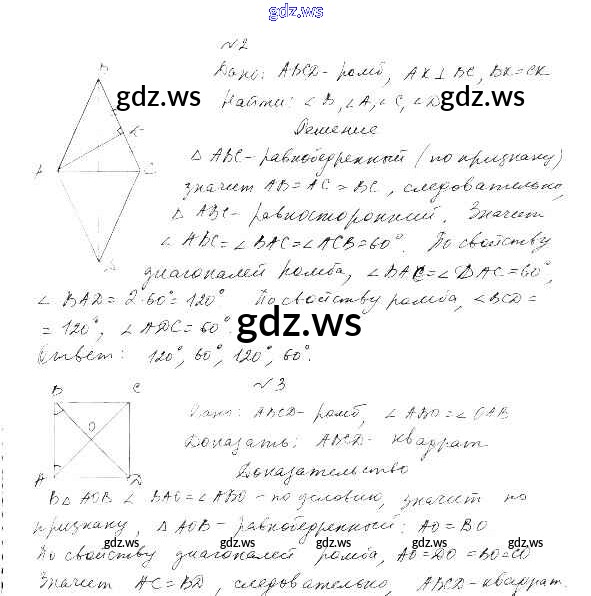 gdz.ws
№2
Дано: ABCD - ромб, AK ⊥ BC, BK = CK
Найти: ∠B, ∠A, ∠C, ∠D
Решение
△ABC - равнобедренный (по признаку)
значит AB = AC = BC, следовательно,
△ABC - равносторонний. Значит
∠ABC = ∠BAC = ∠ACB = 60°. По свойству
диагоналей ромба, ∠BAC = ∠DAC = 60°,
∠BAD = 2·60° = 120° По свойству ромба, ∠BCD =
= 120°, ∠ADC = 60°.
Ответ: 120°, 60°, 120°, 60°.
B
K
A
C
gdz.ws
gdz.ws
gdz.ws
№3
Дано: ABCD - ромб, ∠ABO = ∠OAB
Доказать: ABCD - квадрат
Доказательство
В △AOB ∠BAO = ∠ABO - по условию, значит по
признаку, △AOB - равнобедренный: AO = BO
По свойству диагоналей ромба, AO = DO = BO = CO
Значит AC = BD, следовательно, ABCD - квадрат.
B
C
O
A
D
gdz.ws
gdz.ws
gdz.ws
gdz.ws